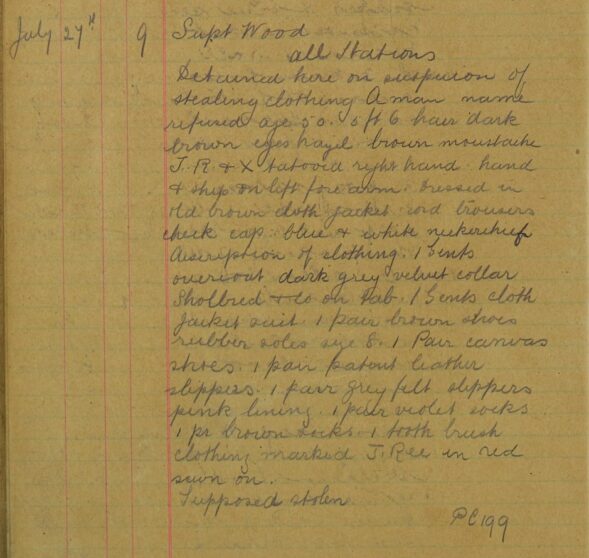 July 27th 9 Supt Wood
all Stations
Detained here on suspicion of
stealing clothing A man name
refused age 50. 5 ft 6 hair dark
brown eyes hazel brown moustache
J. R. & X tatooed right hand hand
& ship on left fore arm. Dressed in
old brown cloth jacket cord trousers
check cap blue & white neckerchief
description of clothing. 1 Gents
overcoat dark grey velvet collar
Sholbred & Co on tab. 1 Gents cloth
Jacket suit 1 pair brown shoes
rubber soles size 8. 1 Pair canvas
shoes. 1 pair patent leather
slippers. 1 pair grey felt slippers
pink lining. 1 pair violet socks
1 pr brown socks. 1 tooth brush
clothing marked J. Ree in red
sewn on.
Supposed stolen
PC 199